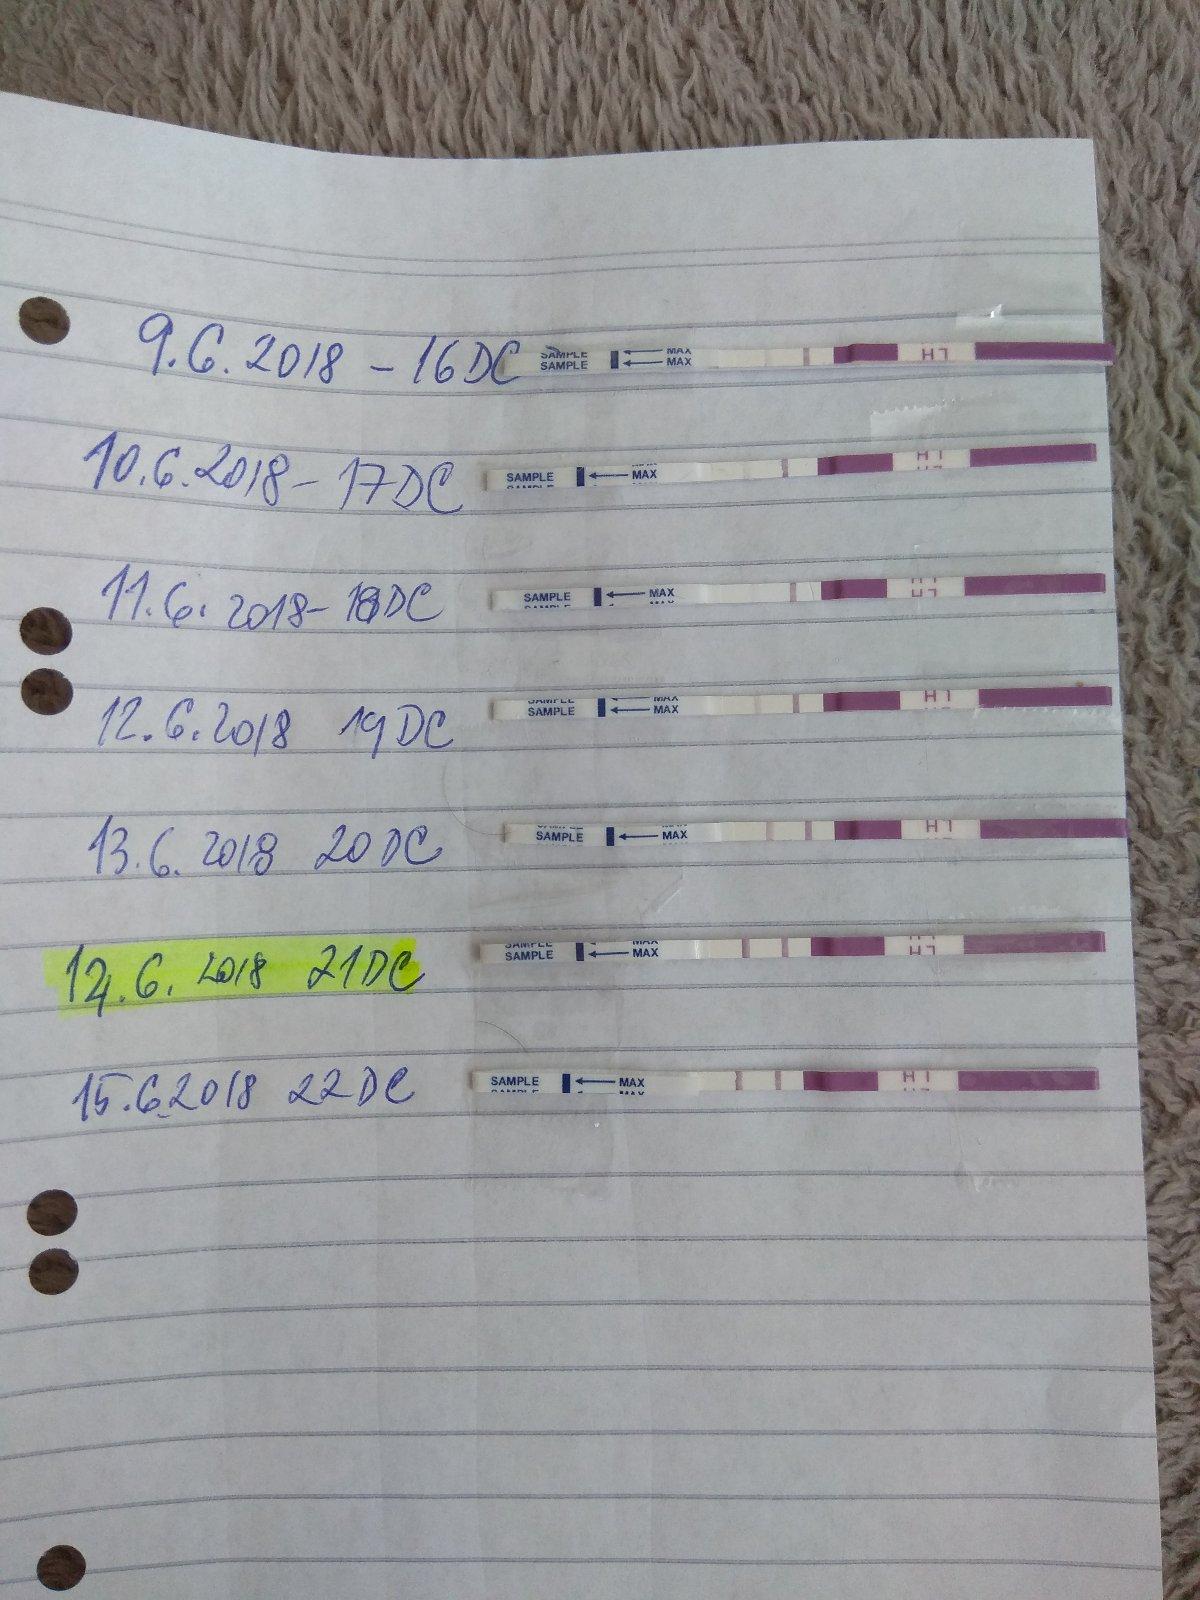 9.6.2018 - 16DC SAMPLE SAMPLE MAX MAX LH
10.6.2018 - 17DC SAMPLE MAX LH
11.6.2018 - 18DC SAMPLE MAX LH
12.6.2018 19DC SAMPLE SAMPLE MAX MAX LH
13.6.2018 20DC SAMPLE MAX LH
14.6.2018 21DC SAMPLE SAMPLE MAX MAX LH
15.6.2018 22DC SAMPLE MAX LH